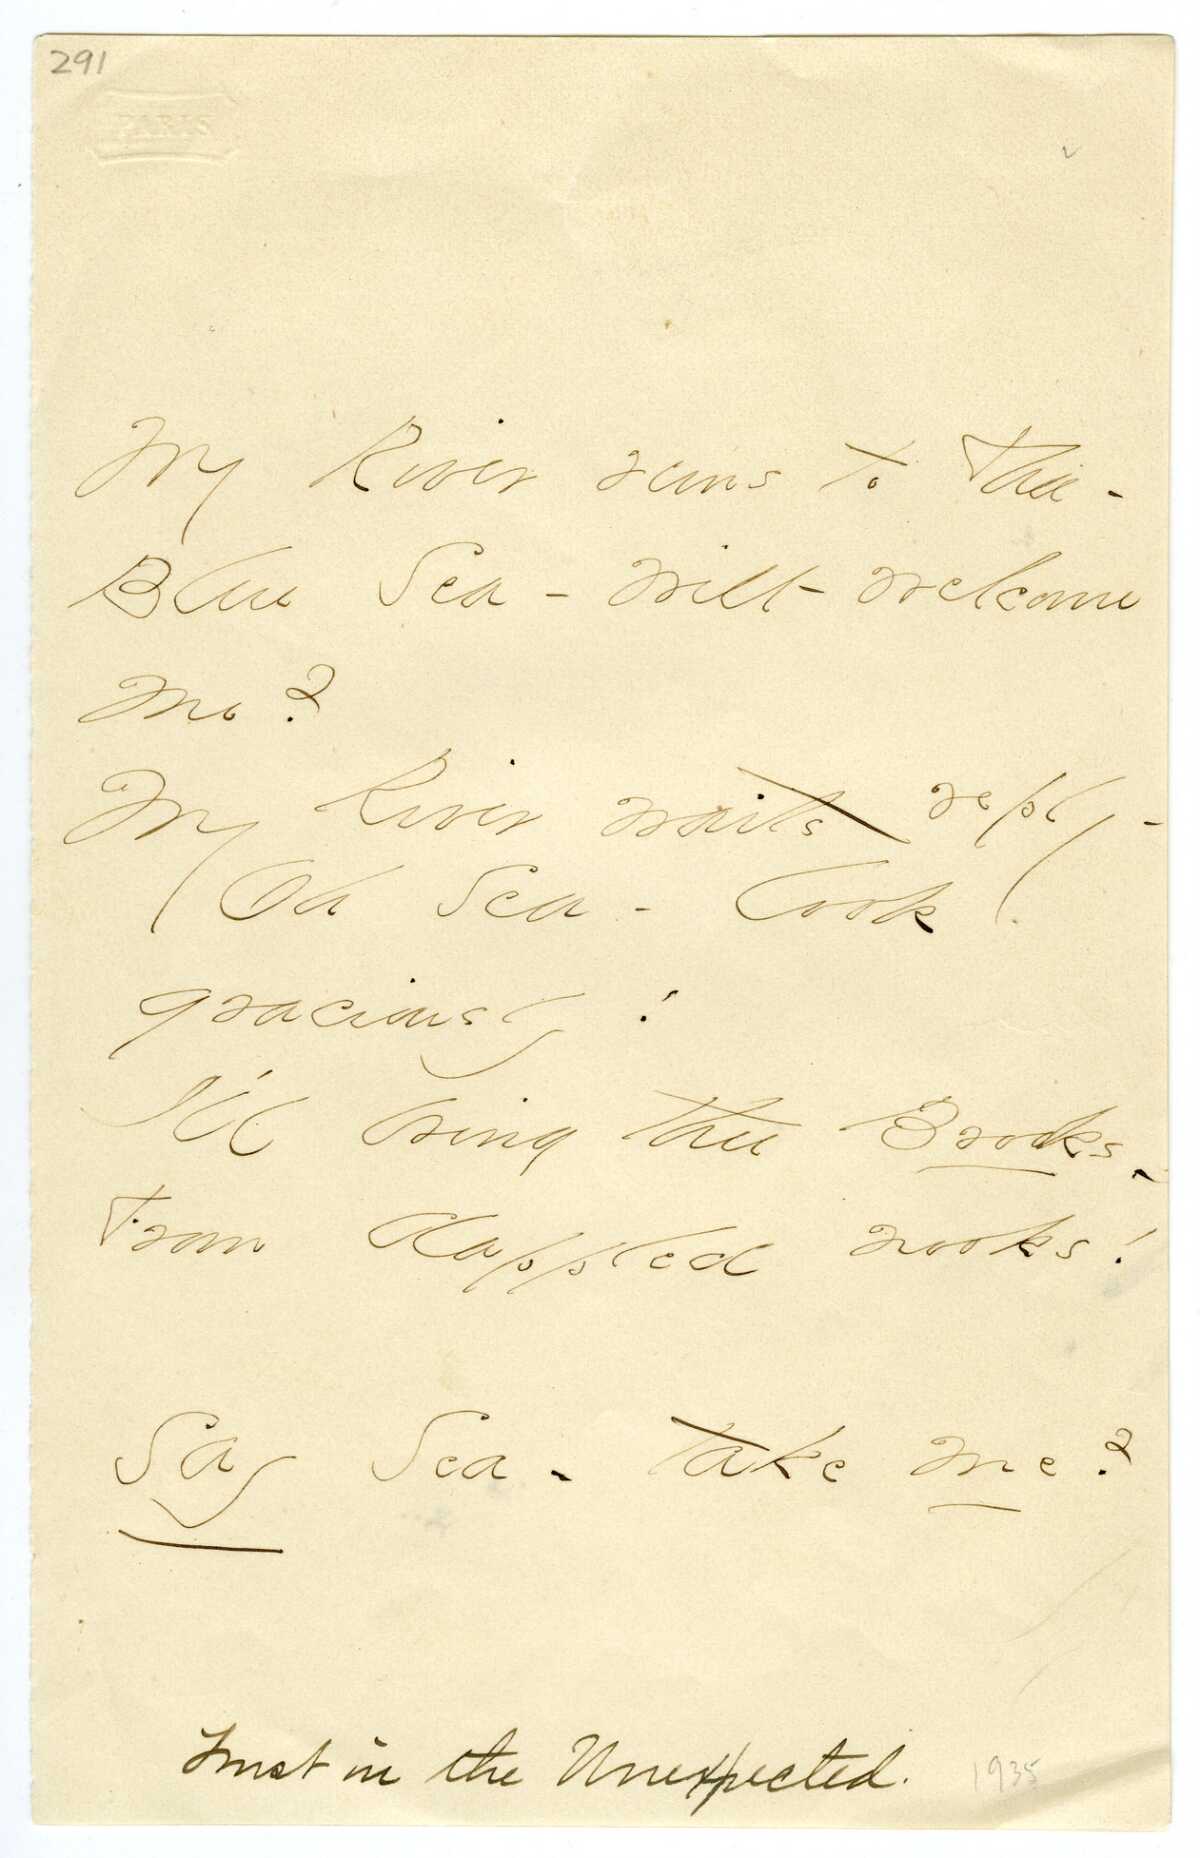 291
PARIS
My River runs to Thee -
Blue Sea - wilt - welcome
me?
My River waits reply -
Oh Sea - look
graciously!
I'll bring thee Brooks -
From dappled nooks!
Say Sea - take me?
Trust in the Unexpected.
1935